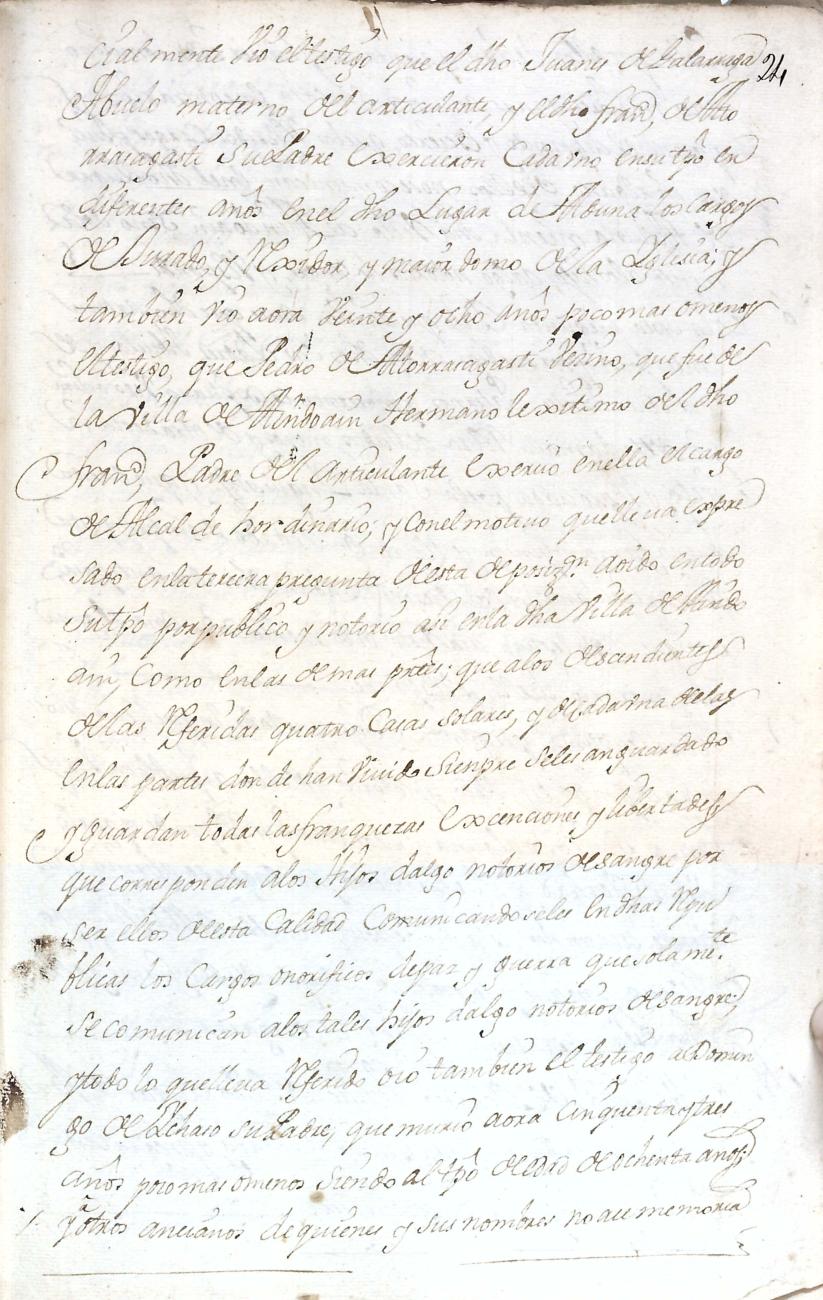 24
cialmente vio el testigo que el dho Juanes de Galarraga
Abuelo materno del articulante, y el dho franco, de Ato
rrasagasti su Padre exercieron Cada uno en su tpô en
diferentes años en el dho Lugar de Albuna los Cargos
de Jurado, y Rexidor, y maior domo de la Yglesia; y
tambien vio aora veinte y ocho años poco mas o menos
el testigo, que Pedro de Atorrasagasti vecino, que fue de
la Villa de Andoain Hermano lexitimo del dho
franco, Padre del Articulante exercio en ella el cargo
de Alcalde hordinario; y con el motivo que lleva expre
sado en la tercera pregunta de esta deposizon aoido en todo
su tpô por publico y notorio asi en la dha Villa de Ando
ain, Como en las demas prtes; que a los descendientes
de las Referidas quatro Casas solares, y de cada una de las
en las partes donde han vivido siempre se les an guardado
y guardan todas las franquezas excenciones y libertades
que corresponden a los Hijos dalgo notorios de sangre por
ser ellos de esta Calidad Comunicandoseles en dhas Repu
blicas los Cargos onorificos de paz y guerra que solamte
se comunican a los tales hijos dalgo notorios de sangre,
y todo lo que lleva Referido oio tambien el testigo a Domin
go de Echaso su Padre, que murio aora cinquenta y tres
años poco mas o menos siendo al tpô de edad de ochenta años;
y a otros ancianos de quienes y sus nombres no ace memoria